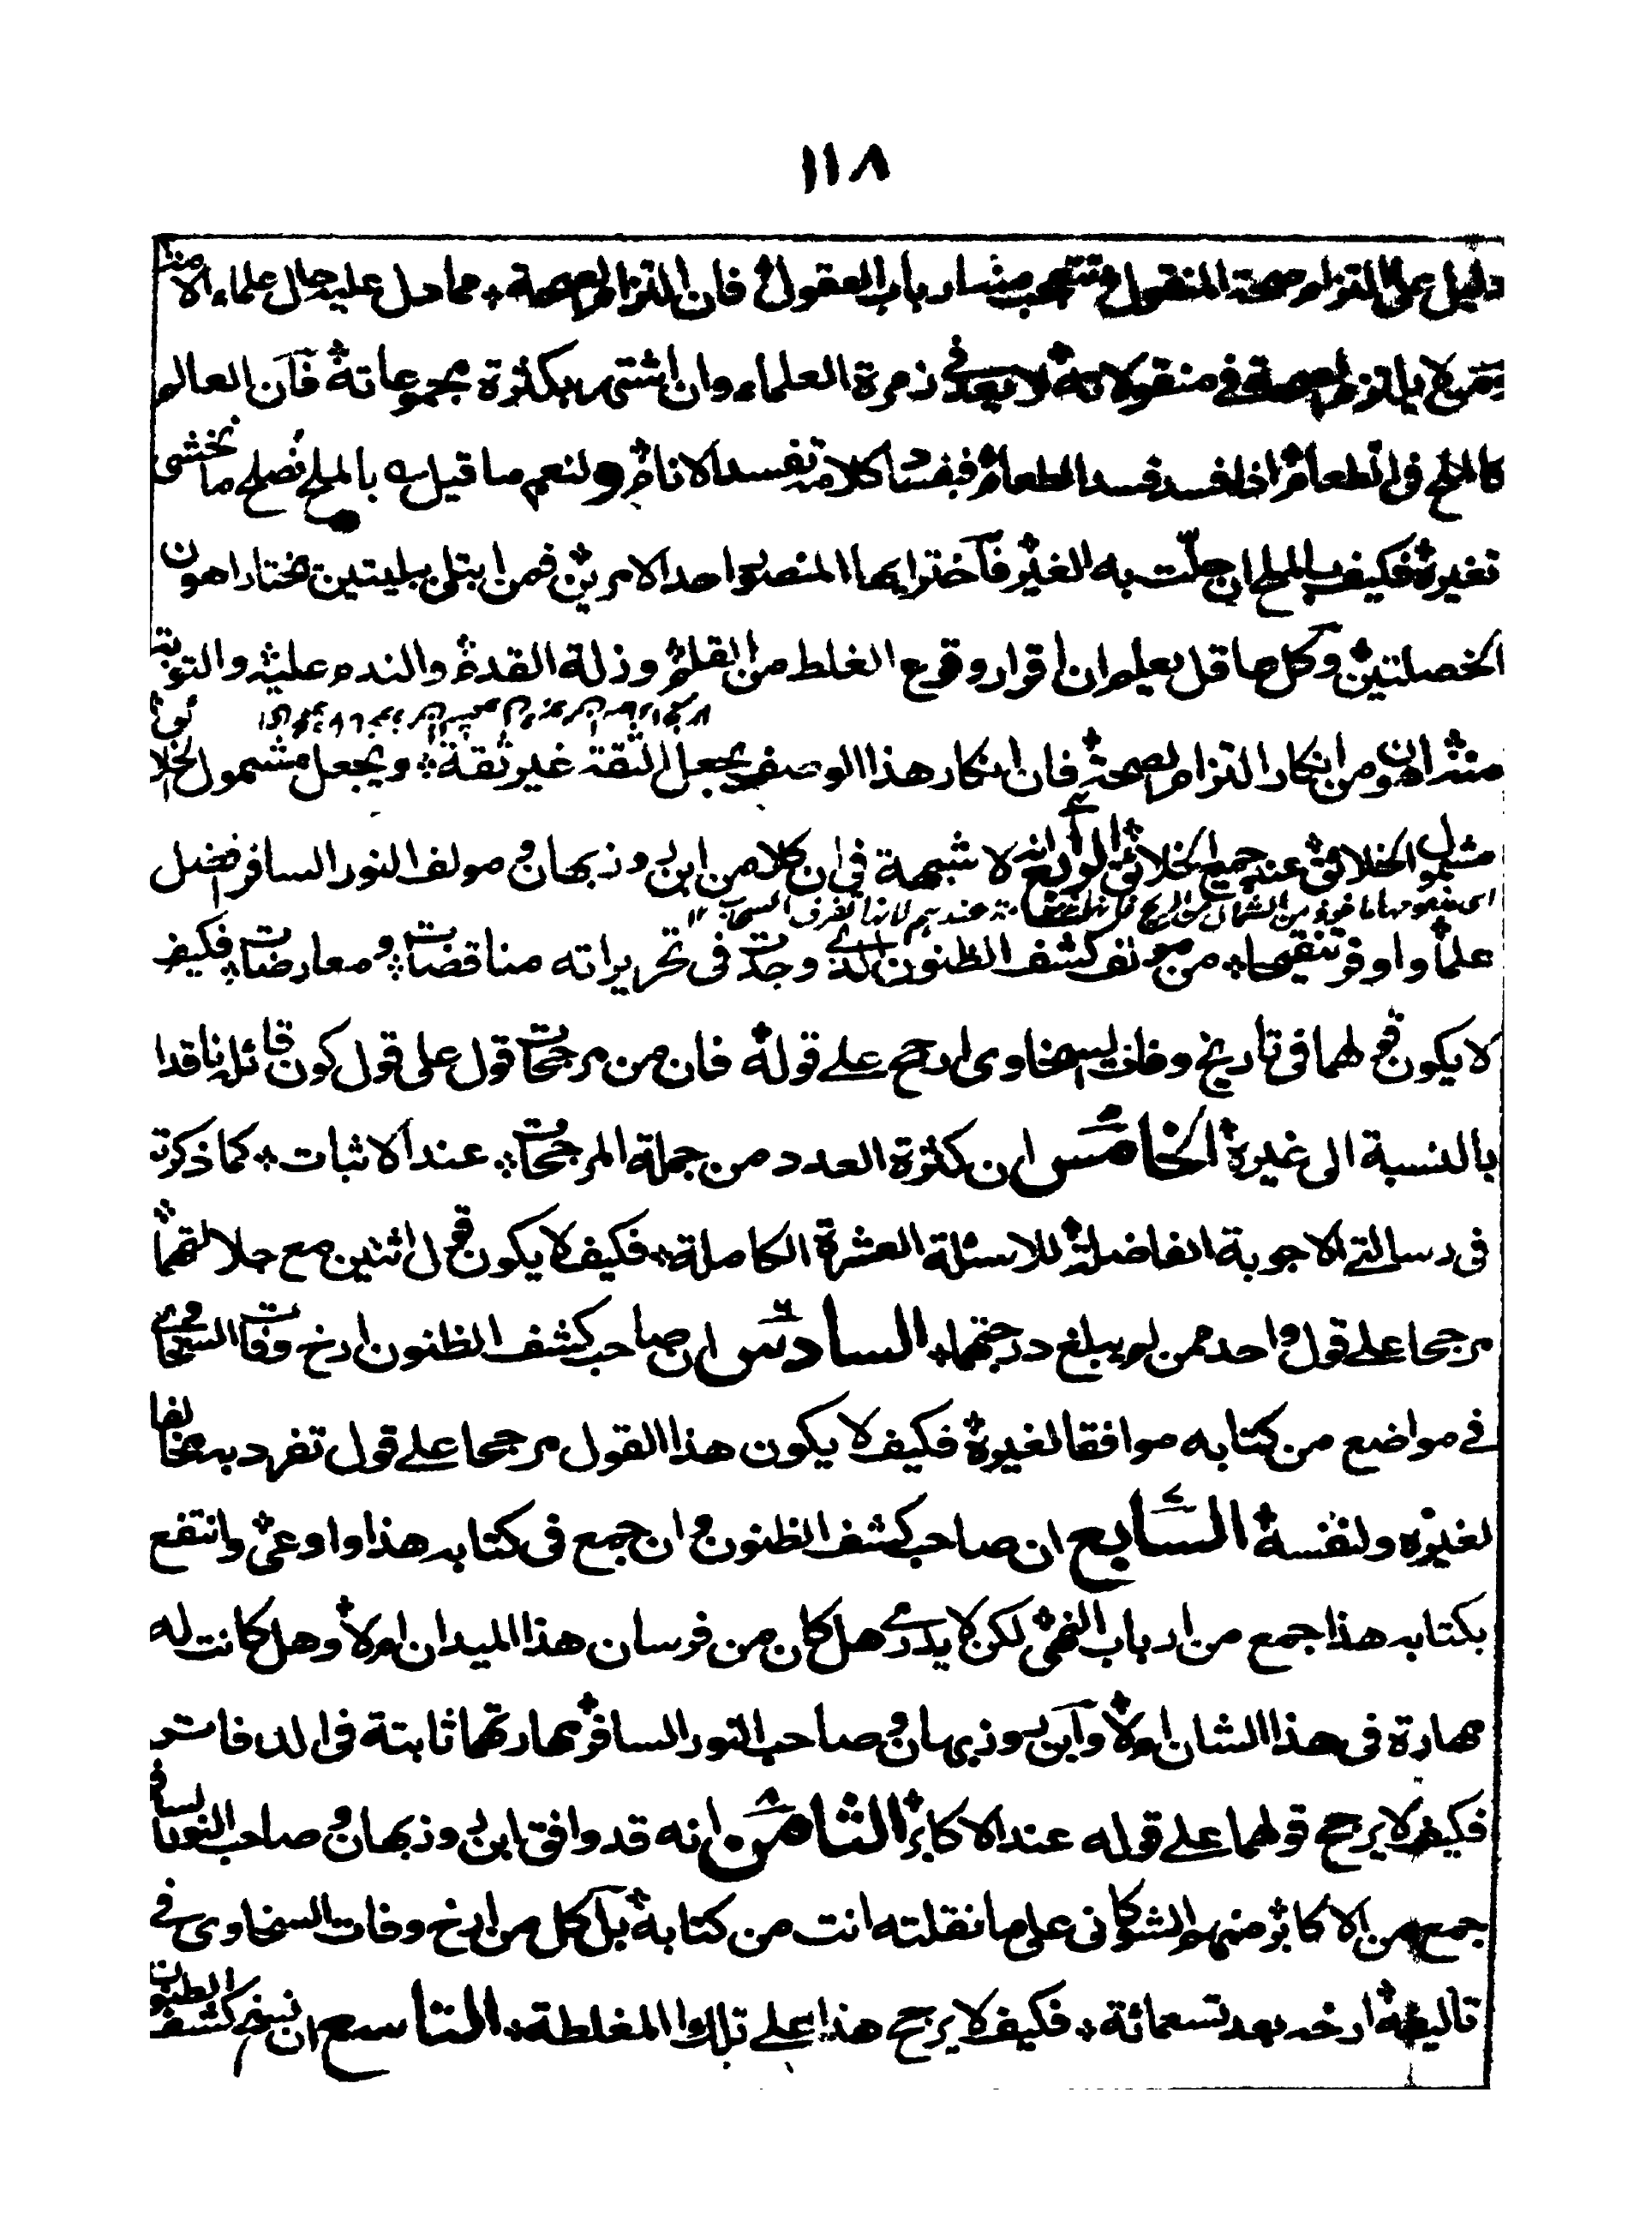 ١١٨
دليل على التزام صحة المنقول فتتعجب منه ارباب العقول فان التزام الصحة مما دل عليه حال علماء الامة
ومن لا يلتزم الصحة في منقولاته لا يعد في زمرة العلماء وان اشتهر بكثرة مجموعاته فان العالم
كالملح في الطعام اذا فسد فسد الطعام فبفساد كلامه تفسد الانام ولنعم ما قيل بالملح نصلح ما نخشى
تغيره فكيف بالملح ان حلت به الغير فاختر ايها المنصور احد الامرين فمن ابتلى ببليتين يختار اهون
الخصلتين وكل عاقل يعلم ان اقرار وقوع الغلط من القلم وذلة القدم والندم عليه والتوبة
منه اهون من انكار التزام الصحة فان انكار هذا الوصف يجعل الثقة غير ثقة ويجعل مشمول الخلائق
مشمول الخلائق عند جميع الخلائق الرابع انه لا شبهة في ان كلا من ابن روزبهان ومولف النور السافر افضل
علما واوفر تنقيحا من مولف كشف الظنون الذي وجدت في تحريراته مناقضات ومعارضات فكيف
لا يكون قولهما في تاريخ وفات السخاوي ارجح على قوله فان من مرجحات قول على قول كون قائله ناقدا
بالنسبة الى غيره الخامس ان كثرة العدد من جملة المرجحات عند الاثبات كما ذكرته
في رسالتي الاجوبة الفاضلة للاسئلة العشرة الكاملة فكيف لا يكون قول اثنين مع جلالتهما
مرجحا على قول واحد ممن لم يبلغ درجتهما السادس ان صاحب كشف الظنون ارخ وفات السخاوي
في مواضع من كتابه موافقا لغيره فكيف لا يكون هذا القول مرجحا على قول تفرد به مخالفا
لغيره ولنفسه السابع ان صاحب كشف الظنون وان جمع في كتابه هذا واوعى وانتفع
بكتابه هذا جمع من ارباب النهى لكن لا يدرى هل كان من فرسان هذا الميدان ام لا وهل كانت له
مهارة في هذا الشان ام لا وابن روزبهان وصاحب النور السافر مهارتهما ثابتة في الدفاتر
فكيف لا يرجح قولهما على قوله عند الاكابر الثامن انه قد وافق ابن روزبهان وصاحب النور السافر
جمع من الاكابر منهم الشوكاني على ما نقلته انت من كتابه بل كل من ارخ وفات السخاوي في
تاليفه ارخه بعد تسعمائة فكيف لا يرجح هذا على تلك المغلطة التاسع ان نسخ كشف الظنون